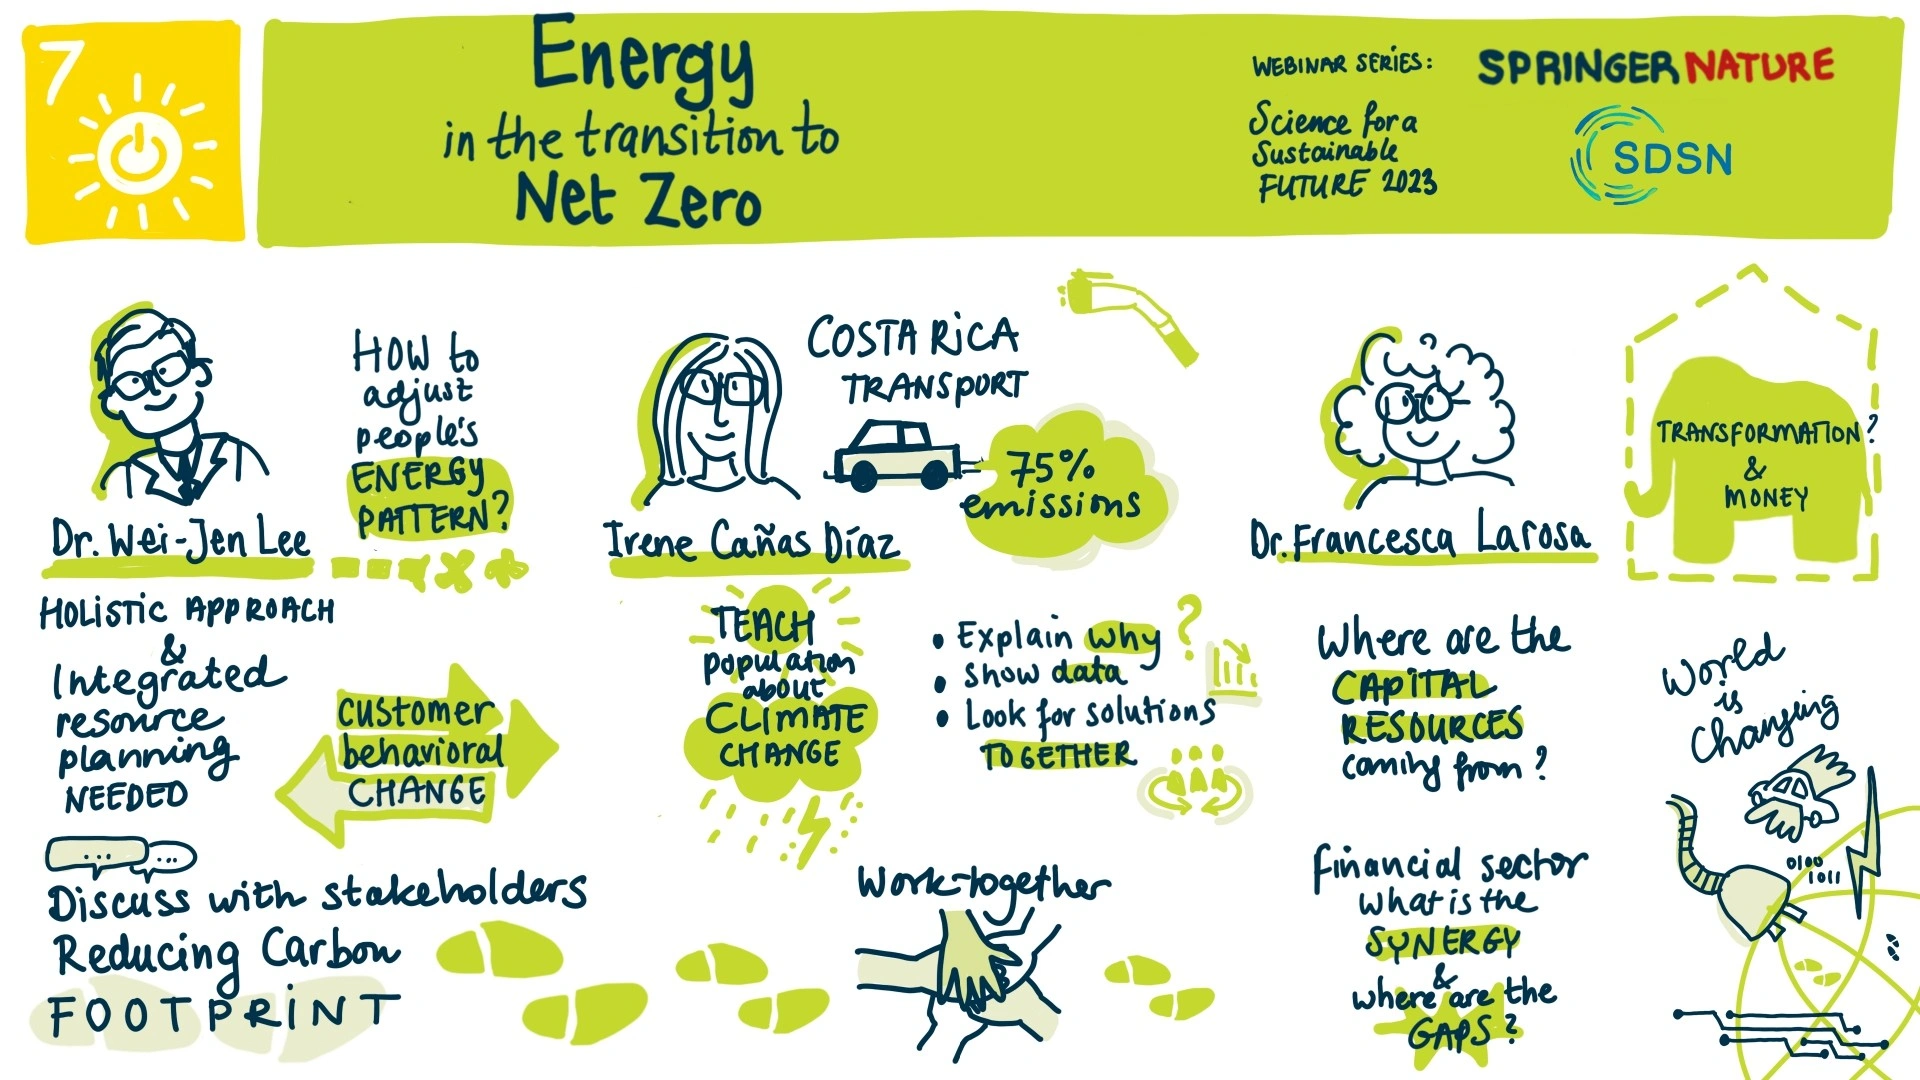 7
Energy
in the transition to
Net Zero
WEBINAR SERIES:
Science for a
Sustainable
FUTURE 2023
SPRINGER NATURE
SDSN
HOW to
adjust
people's
ENERGY
PATTERN?
Dr. Wei-Jen Lee
HOLISTIC APPROACH
&
Integrated
resource
planning
NEEDED
customer
behavioral
CHANGE
...
...
Discuss with stakeholders
Reducing Carbon
FOOTPRINT
COSTA RICA
TRANSPORT
75%
emissions
Irene Cañas Díaz
TEACH
population
about
CLIMATE
CHANGE
• Explain why ?
• Show data
• Look for solutions
TOGETHER
Work together
Dr. Francesca Larosa
TRANSFORMATION?
&
MONEY
Where are the
CAPITAL
RESOURCES
coming from?
Financial sector
What is the
SYNERGY
&
where are the
GAPS?
World
is
Changing
0100
1011